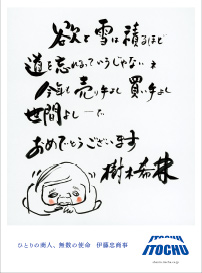 欲と雪は積るほど
道を忘れるっていうじゃないまま
今年も売り手よし買い手よし
世間よしーで
おめでとうございます
樹木希林
ひとりの商人、無数の使命 伊藤忠商事
ITOCHU
ITOCHU